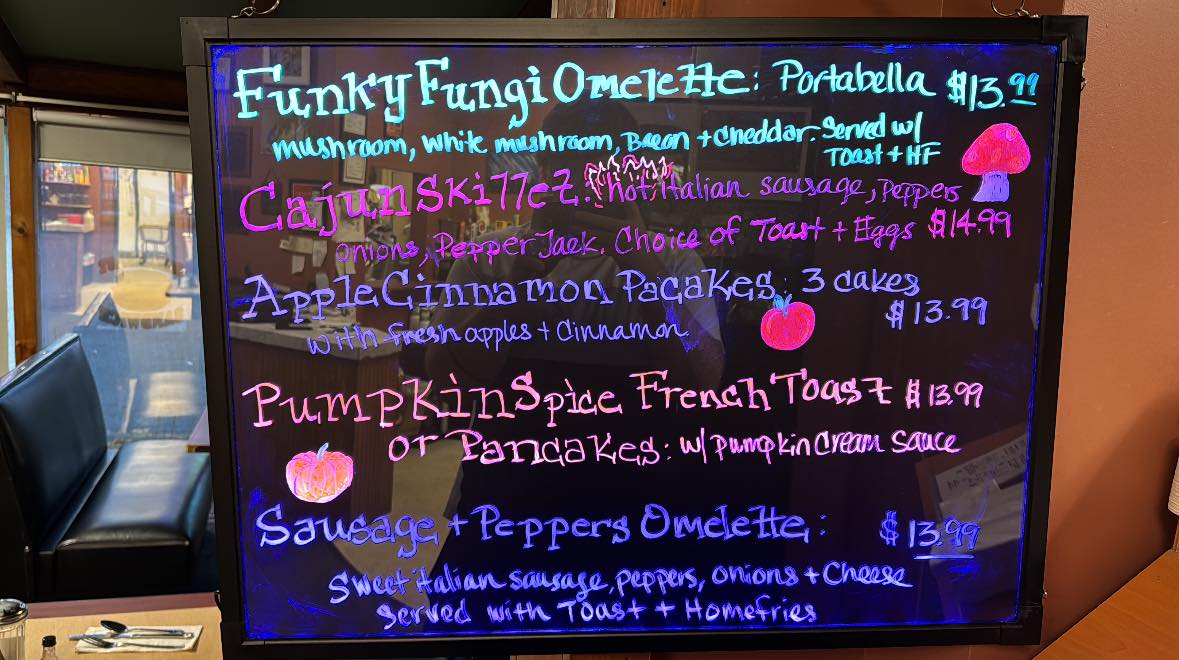 Funky Fungi Omelette: Portabella $13.99
mushroom, White mushroom, Bacon + Cheddar. Served w/
Toast + HF
Cajun Skillet: hot Italian sausage, Peppers
onions, Pepper Jack. Choice of Toast + Eggs $14.99
Apple Cinnamon Pacakes: 3 cakes
with fresh apples + Cinnamon. $13.99
Pumpkin Spice French Toast $13.99
or Pancakes: w/ Pumpkin Cream Sauce
Sausage + Peppers Omelette: $13.99
Sweet italian sausage, peppers, onions + Cheese
Served with Toast + Homefries